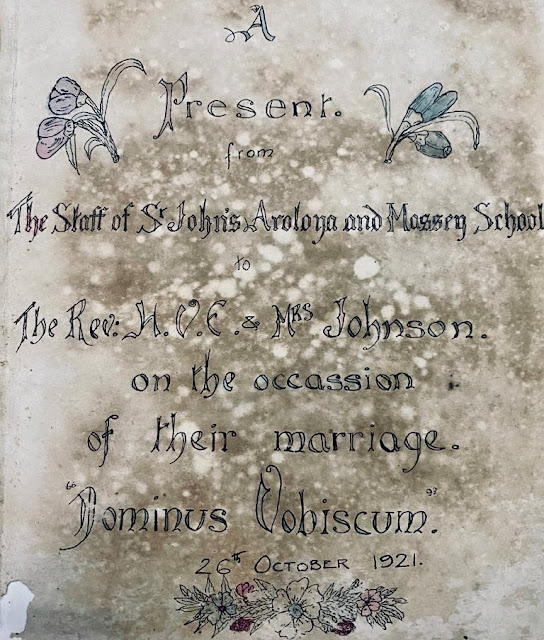 A
Present.
from
The Staff of St John's Aroloya and Massey School
to
The Rev: H. V. E. & Mrs Johnson.
on the occassion
of their marriage.
"Dominus Vobiscum."
26th October 1921.